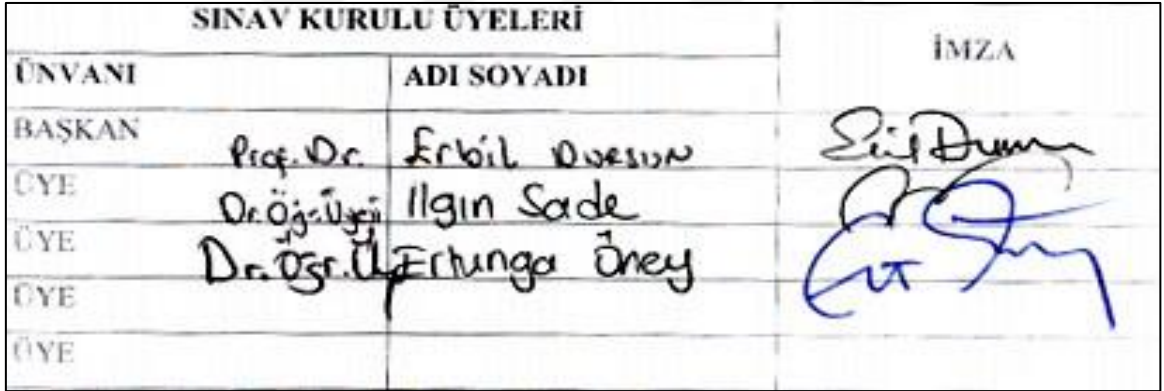 SINAV KURULU ÜYELERİ
İMZA
ÜNVANI ADI SOYADI
BAŞKAN Prof. Dr. Erbil Dursun
ÜYE Dr. Öğr. Üyesi Ilgın Sade
ÜYE Dr. Öğr. Ü. Ertunga Öney
ÜYE
ÜYE